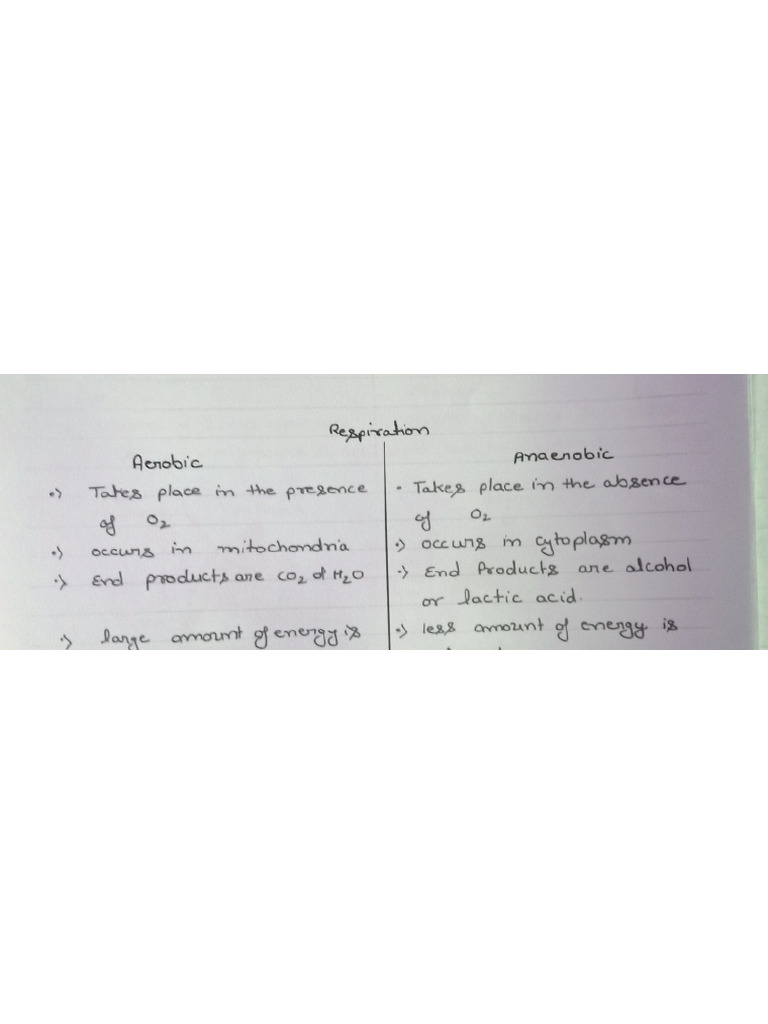 Respiration
Aerobic
•) Takes place in the presence
of O₂
•) occurs in mitochondria
•) End products are CO₂ & H₂O
•) large amount of energy is
Anaerobic
• Takes place in the absence
of O₂
•) occurs in cytoplasm
•) End Products are alcohol
or lactic acid.
•) less amount of energy is